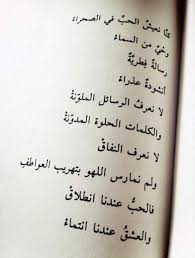 كنّا نعيش الحبّ في الصحراء
وحيٌ من السماءْ
رسالةٌ فطريّةٌ
انشودةٌ عذراءْ
لا نعرف الرسائل الملوّنةْ
والكلمات الحلوة المدوّنةْ
لا نعرف النفاقْ
ولم نمارس اللهو بتهريب العواطفْ
فالحبُّ عندنا انطلاقْ
والعشقُ عندنا انتماءْ